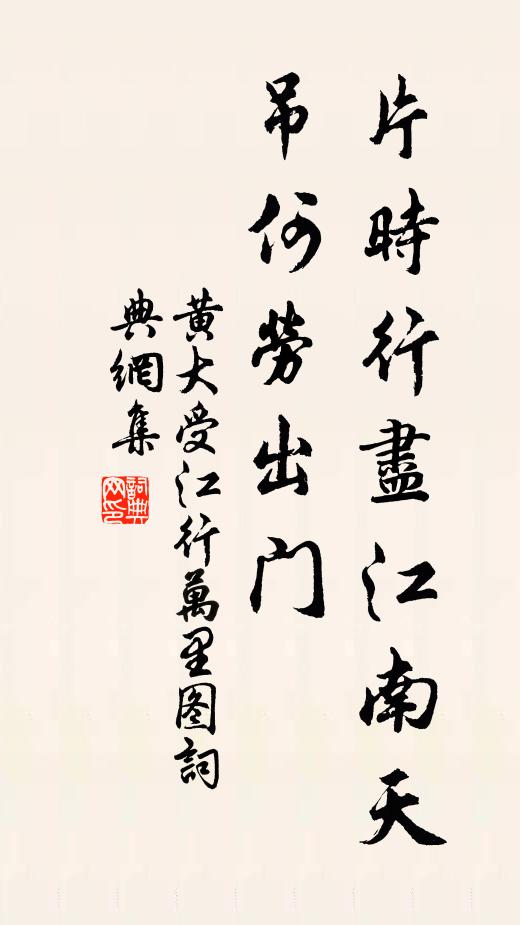 片時行盡江南天
吊何勞出門
黃大受江行萬里图詞
典網集
詞典
网印